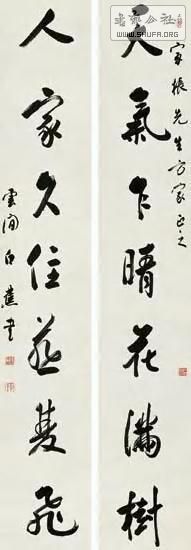 書藝公社
WWW.SHUFA.ORG
家振先生方家正之
天氣乍晴花滿樹
人家久住燕雙飛
雲間白蕉書